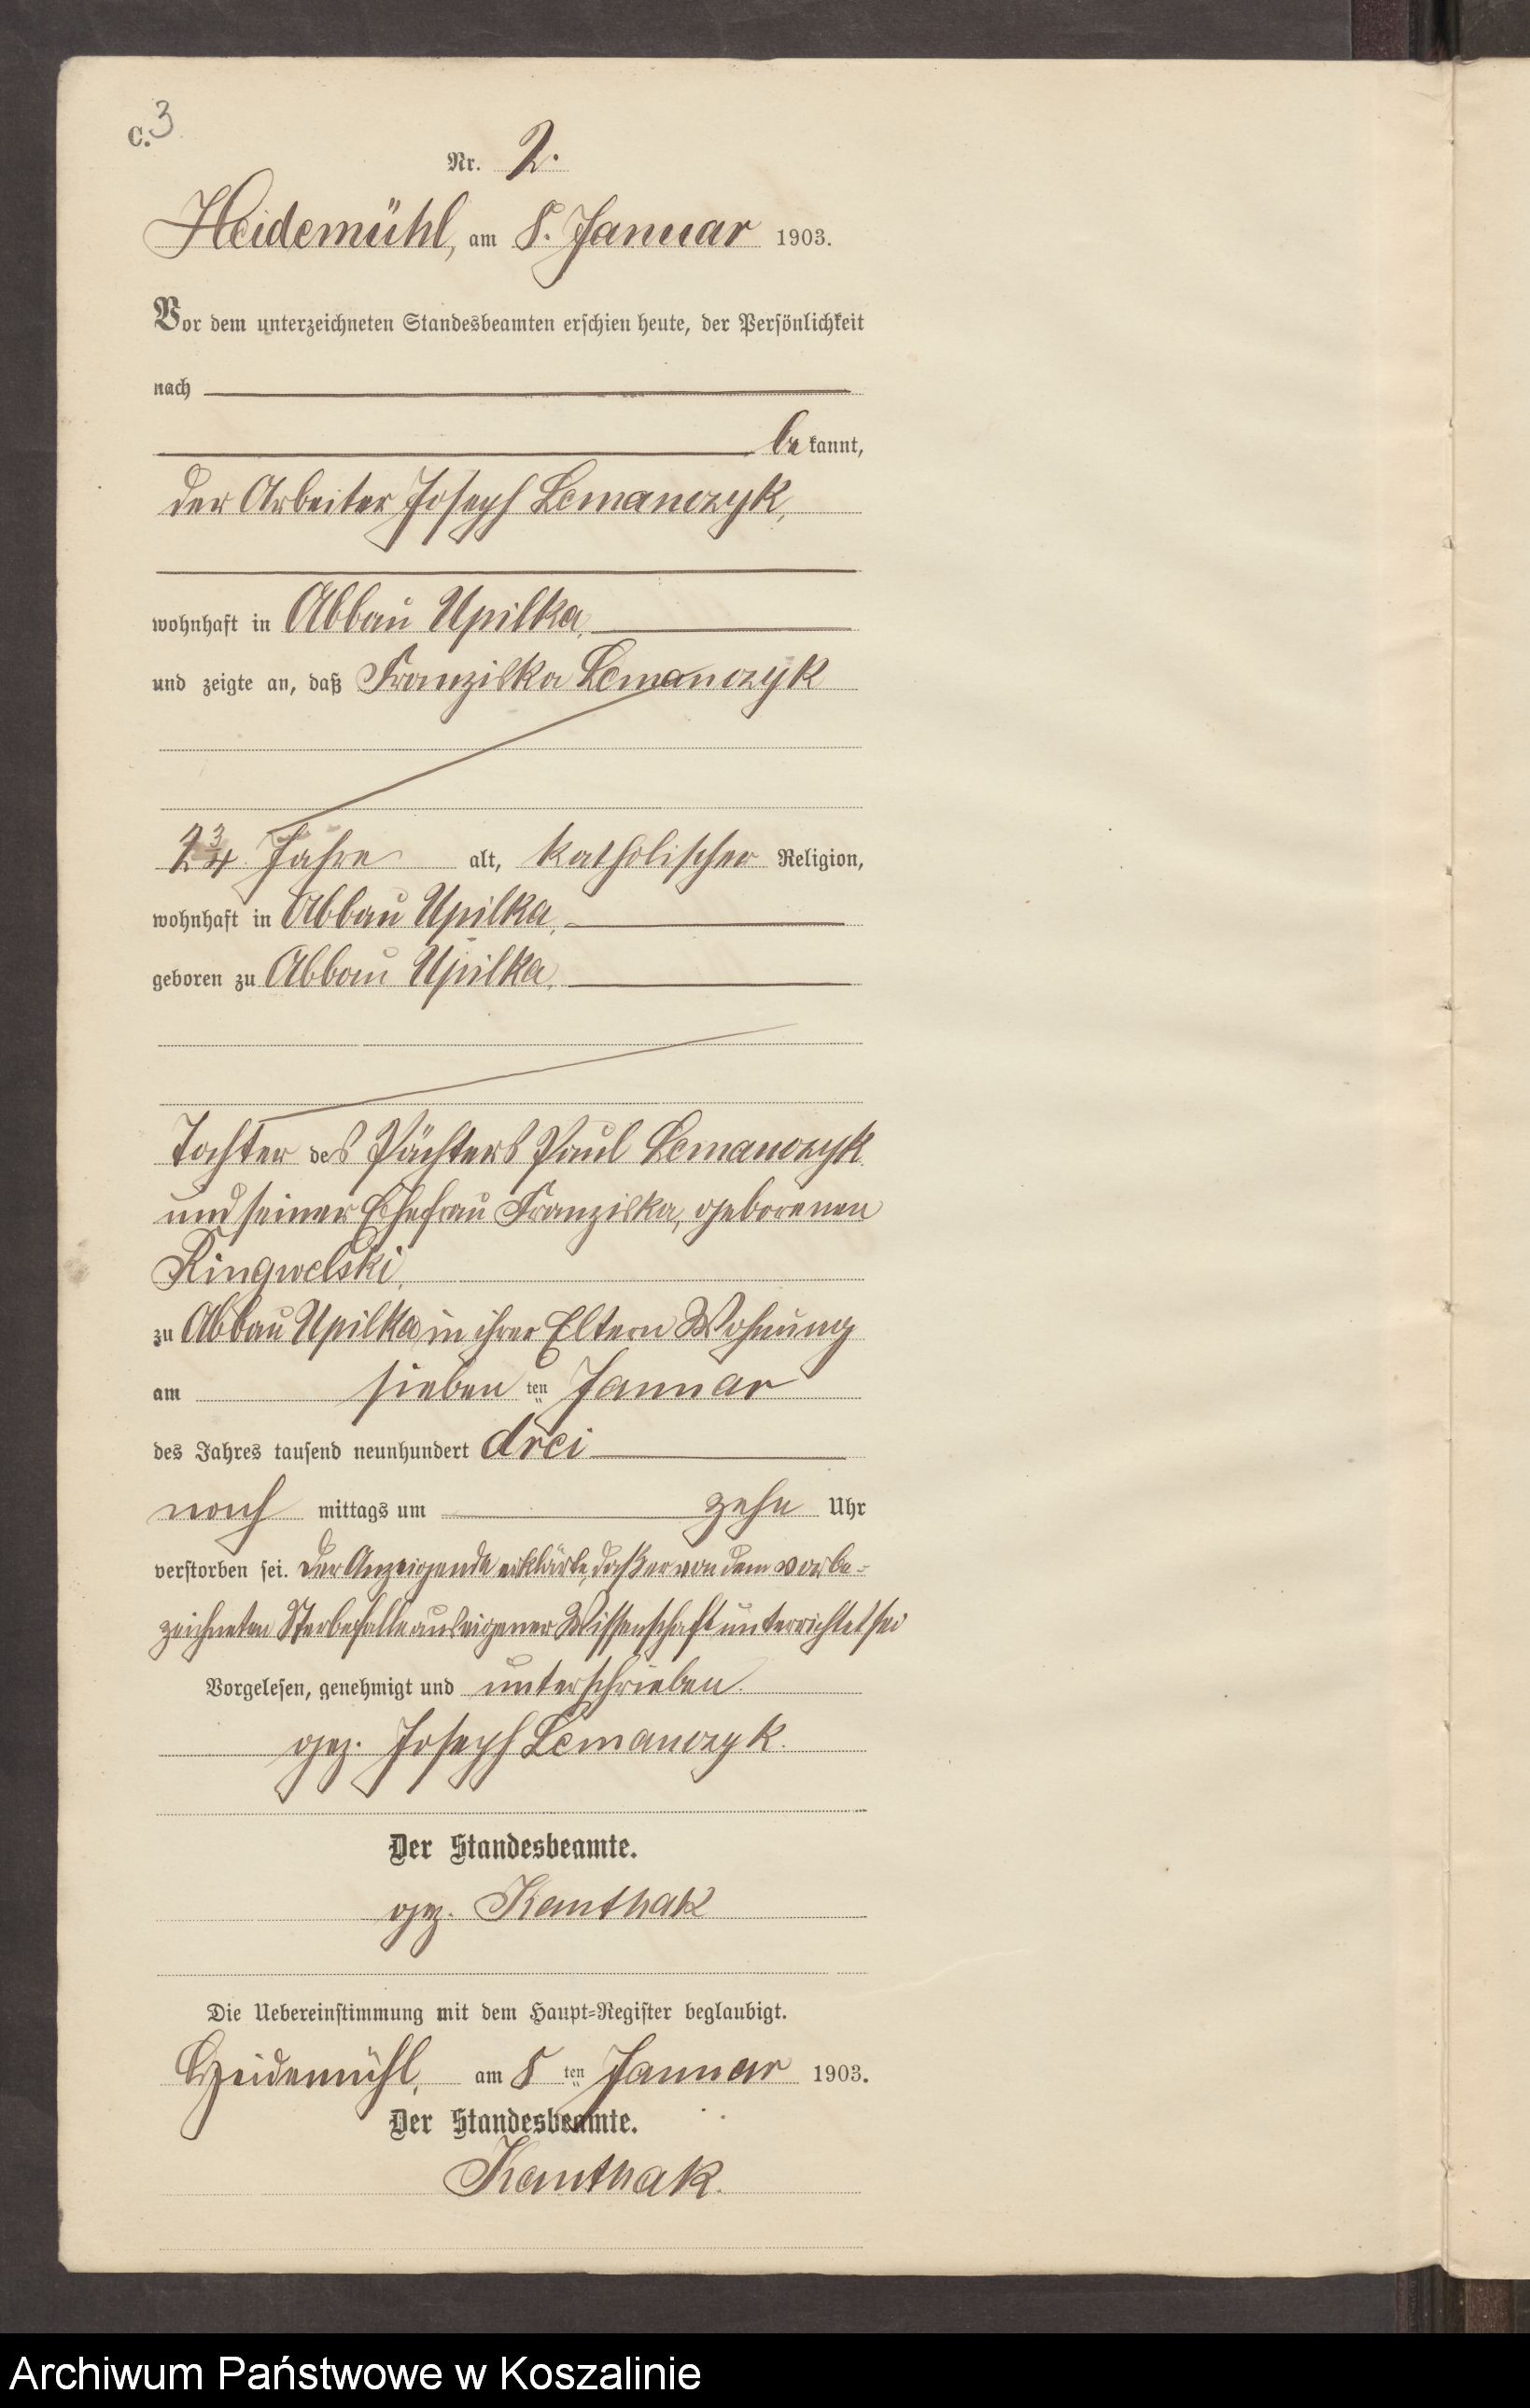 C. 3
Nr. 2.
Heidemühl, am 8. Januar 1903.
Vor dem unterzeichneten Standesbeamten erschien heute, der Persönlichkeit
nach
be kannt,
der Arbeiter Joseph Lemanczyk,
wohnhaft in Abbau Upilka,
und zeigte an, daß Franziska Lemanczyk
2 3/4 Jahre alt, katholischer Religion,
wohnhaft in Abbau Upilka,
geboren zu Abbau Upilka,
Tochter des Pächters Paul Lemanczyk
und seiner Ehefrau Franziska, geborenen
Ringwelski,
zu Abbau Upilka in ihrer Eltern Wohnung
am sieben ten Januar
des Jahres tausend neunhundert drei
nach mittags um zehn Uhr
verstorben sei. Der Anzeigende erklärte, daß er von dem vorbe-
zeichneten Sterbefalle aus eigener Wissenschaft unterrichtet sei
Vorgelesen, genehmigt und unterschrieben
gez. Joseph Lemanczyk.
Der Standesbeamte.
gez. Kanthak
Die Uebereinstimmung mit dem Haupt=Register beglaubigt.
Heidemühl, am 8 ten Januar 1903.
Der Standesbeamte.
Kanthak.
Archiwum Państwowe w Koszalinie